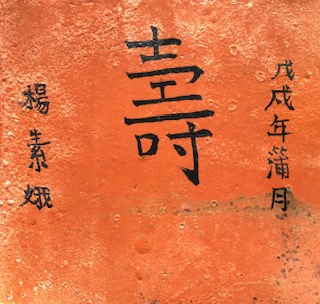 戊戌年蒲月
壽
楊素娥